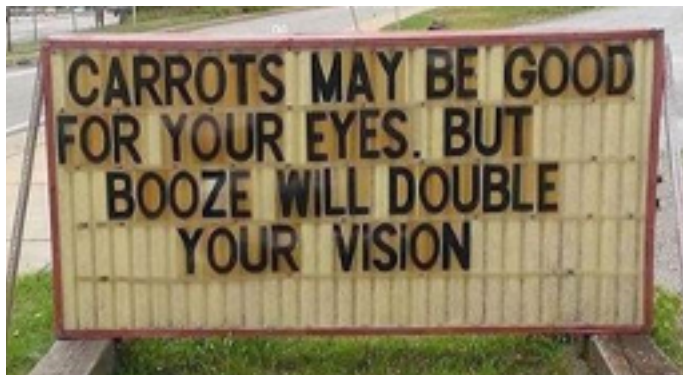 CARROTS MAY BE GOOD
FOR YOUR EYES. BUT
BOOZE WILL DOUBLE
YOUR VISION